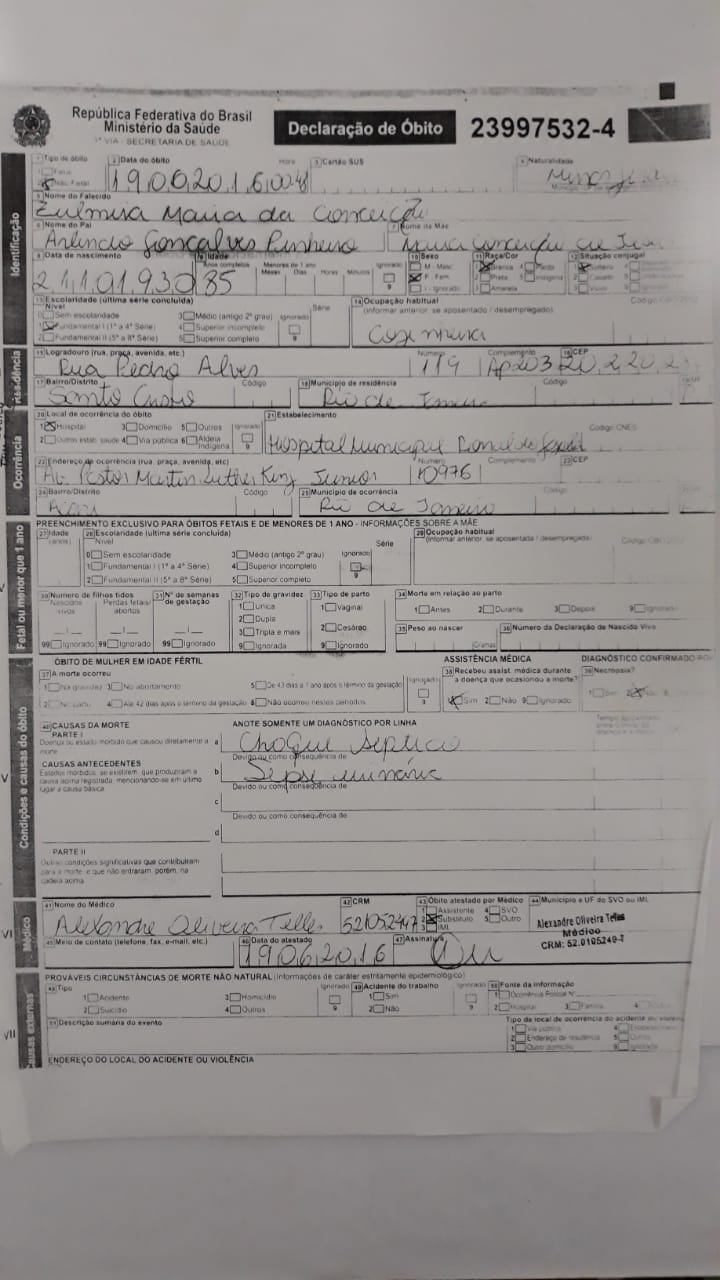 República Federativa do Brasil
Ministério da Saúde
1ª VIA - SECRETARIA DE SAÚDE
Declaração de Óbito
23997532-4
Identificação
1 Tipo de óbito
2 Data do óbito
Hora
3 Cartão SUS
4 Naturalidade
2 Não Fetal
19062016
5 Nome do Falecido
Zulmira Maria da Conceição
6 Nome do Pai
7 Nome da Mãe
Arlindo Gonçalves Pinheiro
Maria Conceição de
8 Data de nascimento
9 Idade
Anos completos
Menores de 1 ano
Meses Dias Horas Minutos
Ignorado
10 Sexo
11 Raça/Cor
12 Situação conjugal
21101930 85
M - Masc.
F - Fem.
I - Ignorado
Branca
Preta
Amarela
Parda
Indígena
13 Escolaridade (última série concluída)
Nível
Série
14 Ocupação habitual
(informar anterior, se aposentado / desempregado)
0 Sem escolaridade
3 Médio (antigo 2º grau)
Ignorado
1 Fundamental I (1ª a 4ª Série)
4 Superior incompleto
2 Fundamental II (5ª a 8ª Série)
5 Superior completo
9
Cozinheira
Residência
15 Logradouro (rua, praça, avenida, etc.)
Número
Complemento
16 CEP
Rua Pedro Alves
119
Ap203
20.220.2
17 Bairro/Distrito
Código
18 Município de residência
Código
Santo Cristo
Rio de Janeiro
Ocorrência
20 Local de ocorrência do óbito
21 Estabelecimento
Código CNES
1 Hospital
3 Domicílio
5 Outros
Ignorado
2 Outros estab. saúde
4 Via pública
6 Aldeia Indígena
9
Hospital Municipal Ronaldo Gazolla
22 Endereço de ocorrência (rua, praça, avenida, etc)
Número
Complemento
23 CEP
Av. Pastor Martin Luther King Junior
10976
24 Bairro/Distrito
Código
25 Município de ocorrência
Código
Acari
Rio de Janeiro
Fetal ou menor que 1 ano
PREENCHIMENTO EXCLUSIVO PARA ÓBITOS FETAIS E DE MENORES DE 1 ANO - INFORMAÇÕES SOBRE A MÃE
27 Idade
(anos)
28 Escolaridade (última série concluída)
Nível
Série
29 Ocupação habitual
(informar anterior, se aposentada / desempregada)
0 Sem escolaridade
3 Médio (antigo 2º grau)
Ignorado
1 Fundamental I (1ª a 4ª Série)
4 Superior incompleto
2 Fundamental II (5ª a 8ª Série)
5 Superior completo
9
30 Número de filhos tidos
Nascidos vivos
Perdas fetais/ abortos
31 Nº de semanas de gestação
32 Tipo de gravidez
33 Tipo de parto
34 Morte em relação ao parto
1 Única
2 Dupla
3 Tripla e mais
9 Ignorada
1 Vaginal
2 Cesáreo
9 Ignorado
1 Antes
2 Durante
3 Depois
9 Ignorado
99 Ignorado
99 Ignorado
99 Ignorado
35 Peso ao nascer
Gramas
36 Número da Declaração de Nascido Vivo
Condições e causas do óbito
ÓBITO DE MULHER EM IDADE FÉRTIL
ASSISTÊNCIA MÉDICA
DIAGNÓSTICO CONFIRMADO POR
37 A morte ocorreu
38 Recebeu assist. médica durante a doença que ocasionou a morte?
39 Necrópsia?
1 Na gravidez
3 No abortamento
5 De 43 dias a 1 ano após o término da gestação
Ignorado
2 No parto
4 Até 42 dias após o término da gestação
8 Não ocorreu nestes períodos
9
1 Sim
2 Não
9 Ignorado
1 Sim
2
40 CAUSAS DA MORTE
PARTE I
ANOTE SOMENTE UM DIAGNÓSTICO POR LINHA
Doença ou estado mórbido que causou diretamente a morte
a
Choque septico
Devido ou como consequência de
CAUSAS ANTECEDENTES
Estados mórbidos, se existirem, que produziram a causa acima registrada, mencionando-se em último lugar a causa básica
b
Sepse urinária
Devido ou como consequência de
c
Devido ou como consequência de
d
PARTE II
Outras condições significativas que contribuíram para a morte, e que não entraram, porém, na cadeia acima
VI
Médico
41 Nome do Médico
42 CRM
43 Óbito atestado por Médico
44 Município e UF do SVO ou IML
Alexandre Oliveira Telles
1 Assistente
2 Substituto
3 IML
4 SVO
5 Outro
Alexandre Oliveira Telles
Médico
45 Meio de contato (telefone, fax, e-mail, etc.)
46 Data do atestado
47 Assinatura
19062016
VII
Causas externas
PROVÁVEIS CIRCUNSTÂNCIAS DE MORTE NÃO NATURAL (Informações de caráter estritamente epidemiológico)
48 Tipo
Ignorado
49 Acidente do trabalho
Ignorado
50 Fonte da informação
1 Acidente
3 Homicídio
2 Suicídio
4 Outros
9
1 Sim
2 Não
9
1 Ocorrência Policial Nº
2 Hospital
3 Família
51 Descrição sumária do evento
Tipo de local de ocorrência do acidente ou
1 Via pública
2 Endereço de residência
3 Outro domicílio
ENDEREÇO DO LOCAL DO ACIDENTE OU VIOLÊNCIA